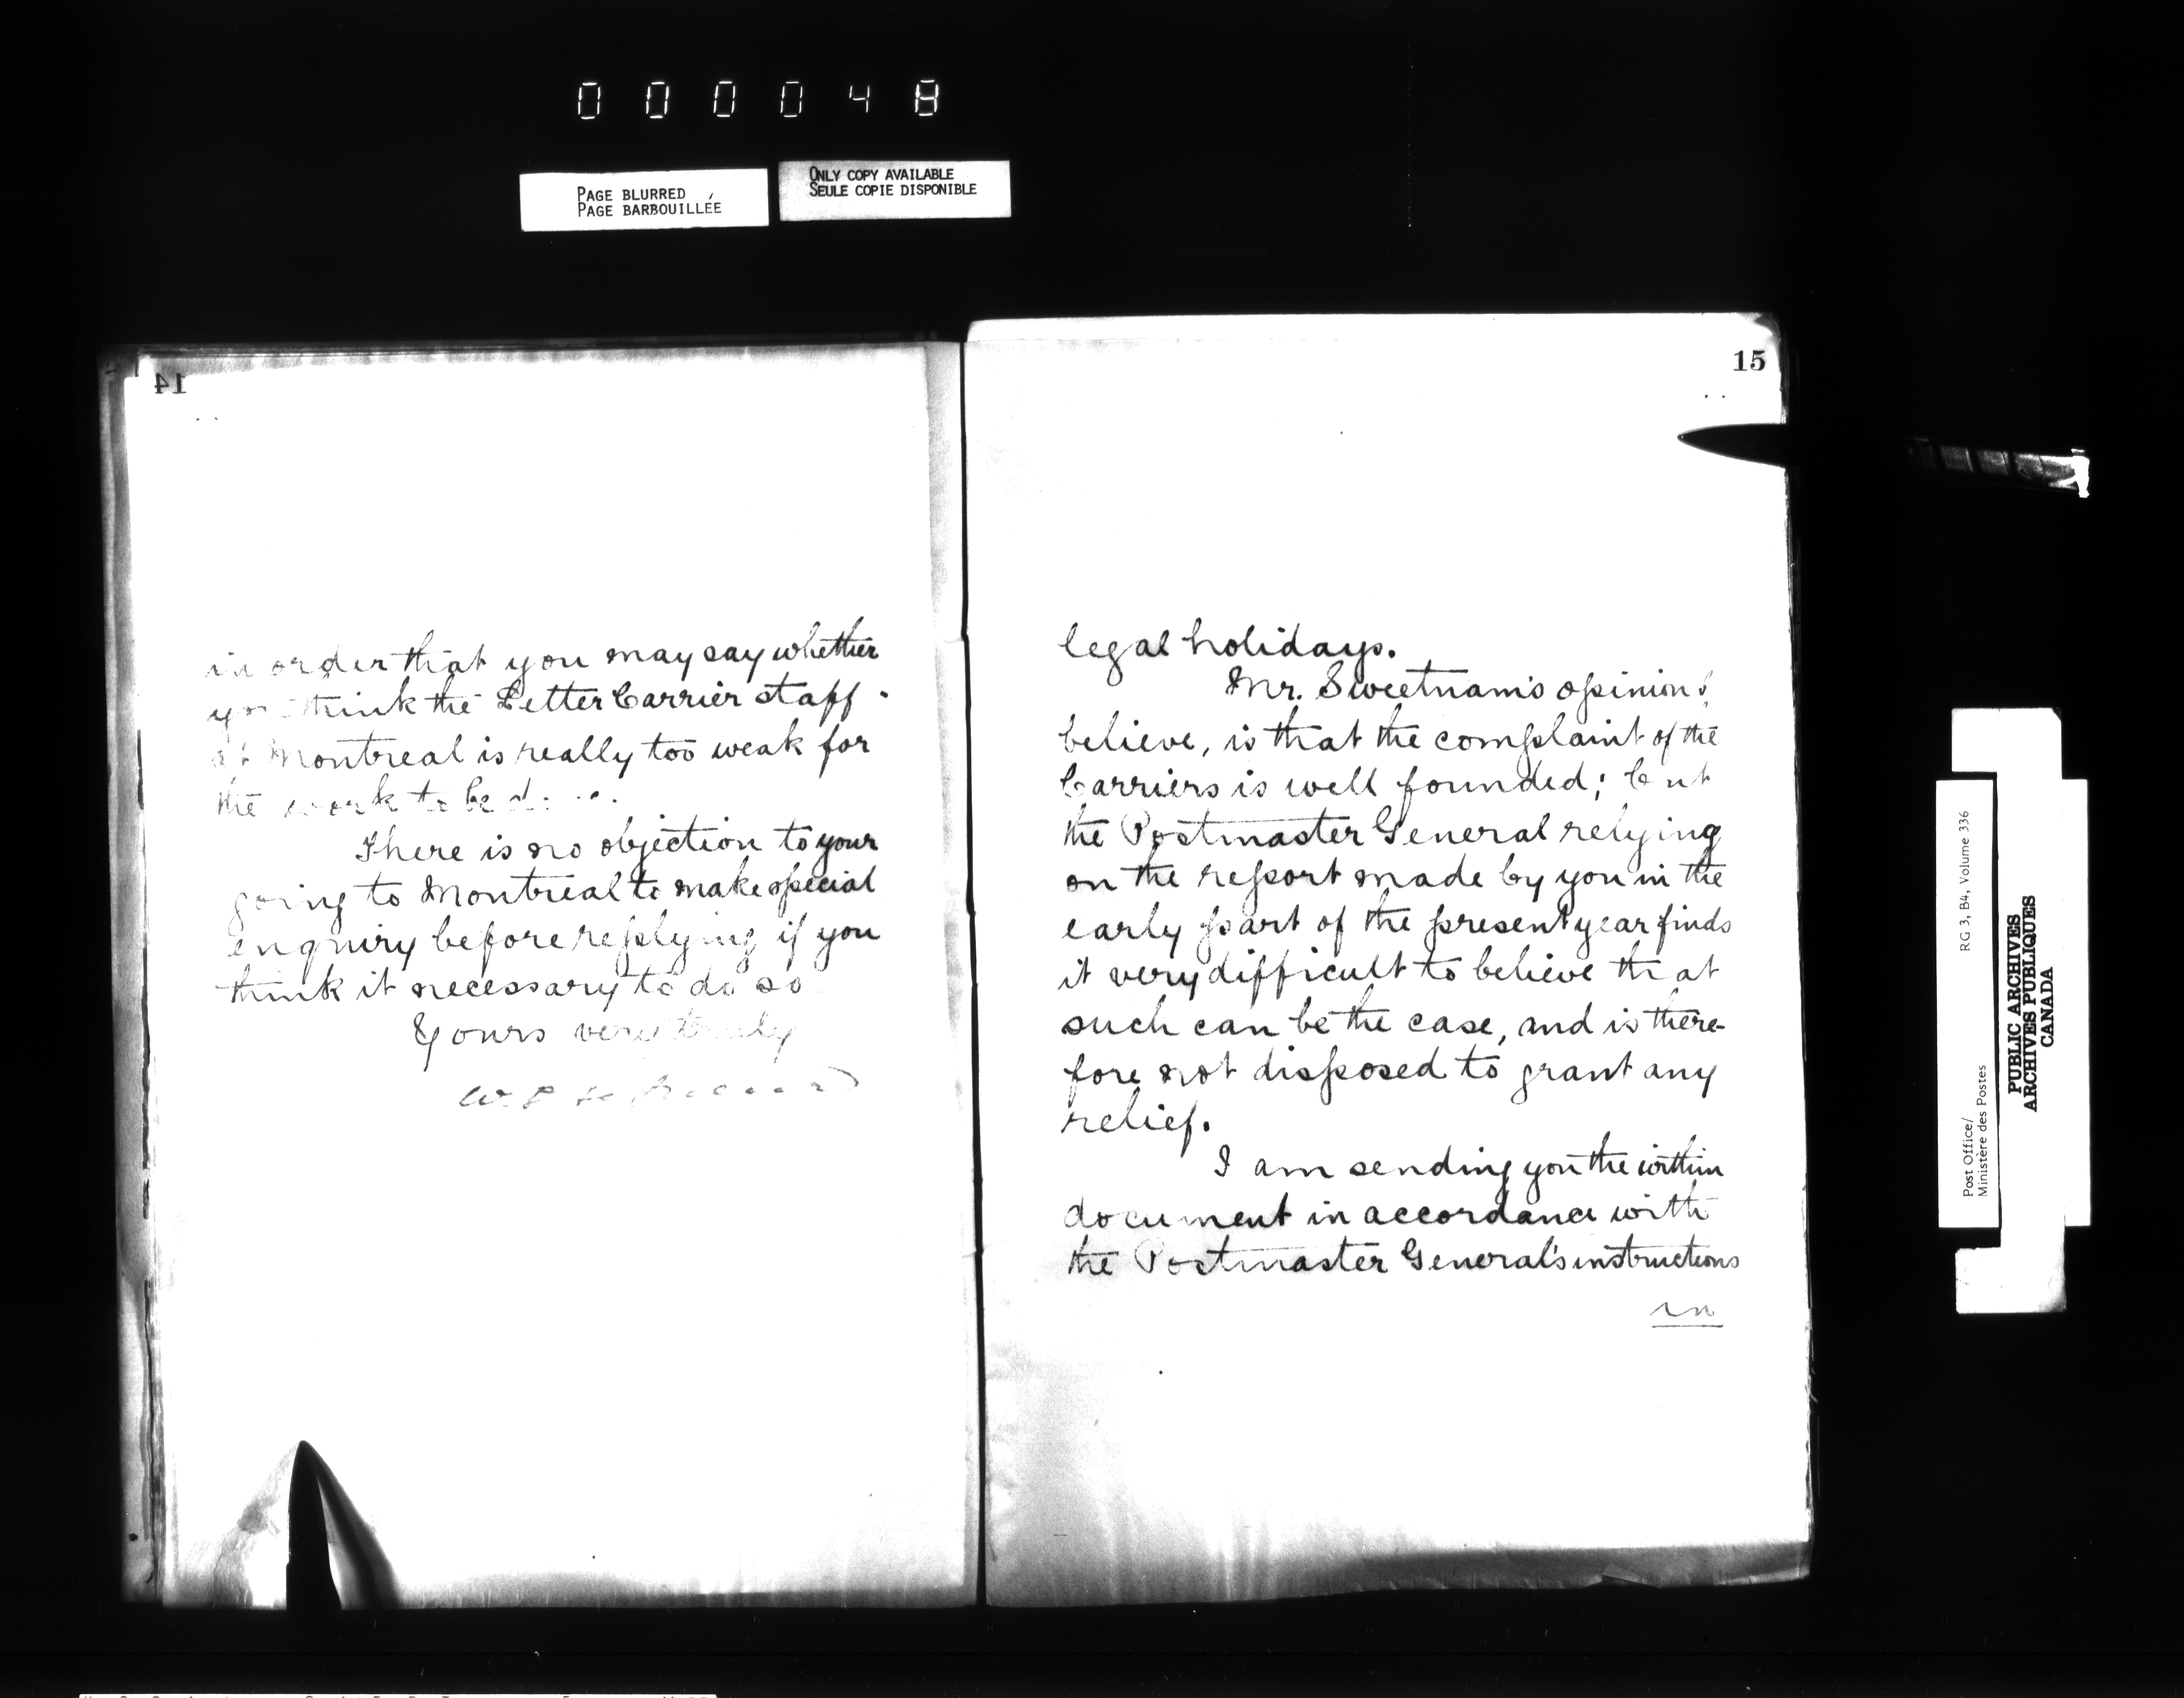 0 0 0 0 4 8
PAGE BLURRED
PAGE BARBOUILLÉE
ONLY COPY AVAILABLE
SEULE COPIE DISPONIBLE
14
in order that you may say whether
you think the Letter Carrier staff
at Montreal is really too weak for
the work to be
There is no objection to your
going to Montreal to make special
enquiry before replying if you
think it necessary to do so
Yours very truly
W.
15
legal holidays.
Mr. Sweetnam's opinion I
believe, is that the complaint of the
Carriers is well founded; but
the Postmaster General relying
on the report made by you in the
early part of the present year finds
it very difficult to believe that
such can be the case, and is there-
fore not disposed to grant any
relief.
I am sending you the within
document in accordance with
the Postmaster General's instructions
in
Post Office/
Ministère des Postes
RG 3, B4, Volume 336
PUBLIC ARCHIVES
ARCHIVES PUBLIQUES
CANADA